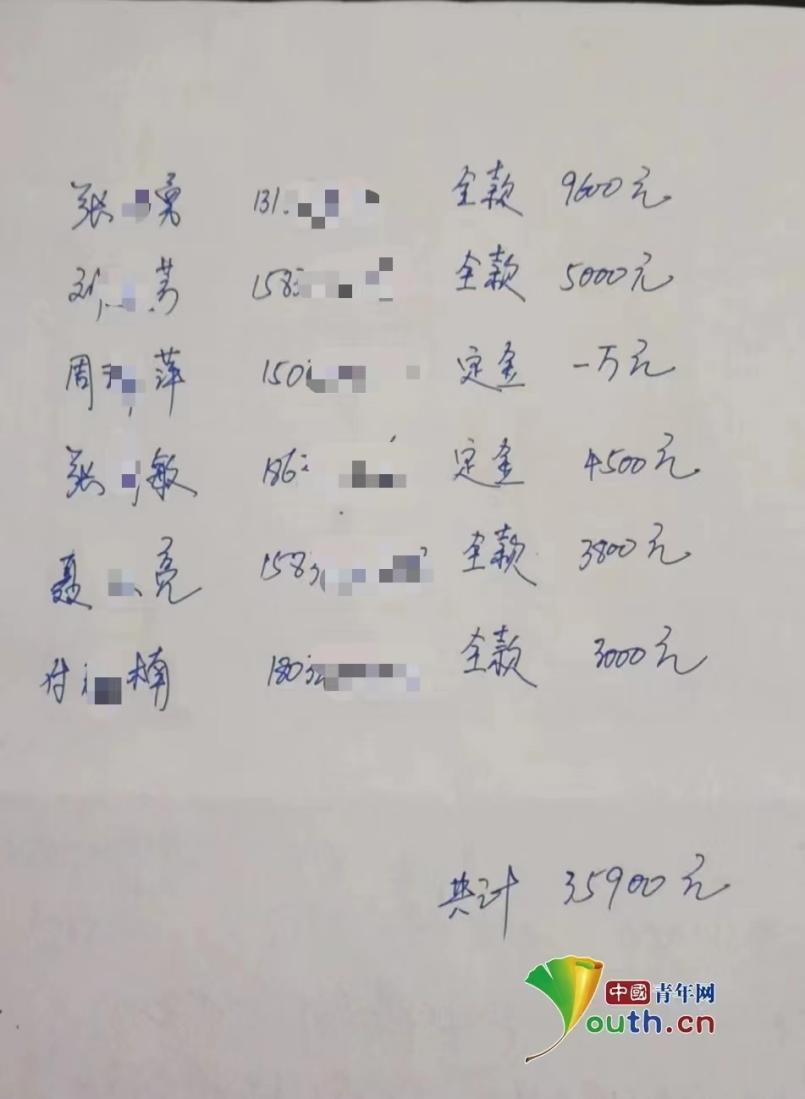 张 勇 131. 全款 9600元
刘 芳 158 全款 5000元
周 萍 150 定金 一万元
张 敏 186 定金 4500元
聂 亮 158 全款 3800元
付 楠 180 全款 3000元
共计 35900元
中國青年网
Youth.cn